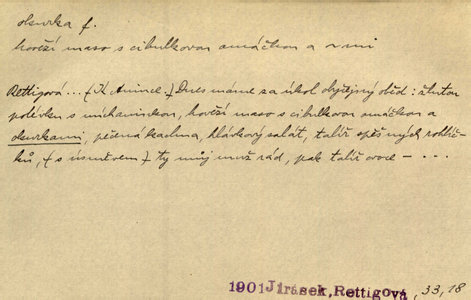 okurka f.
hovězí maso s cibulkovou omáčkou a s ní
Rettigová ... (K Anince.) Dnes máme za úkol obyčejný oběd: žlutou
polévku s míchaninkou, hovězí maso s cibulkovou omáčkou a
okurkami, pečená kachna, hlávkový salát, talíř spěšných rohlíč-
ků, (s úsměvem) ty můj muž rád, pak talíř ovoce – ...
1901 Jirásek, Rettigová, 33, 18